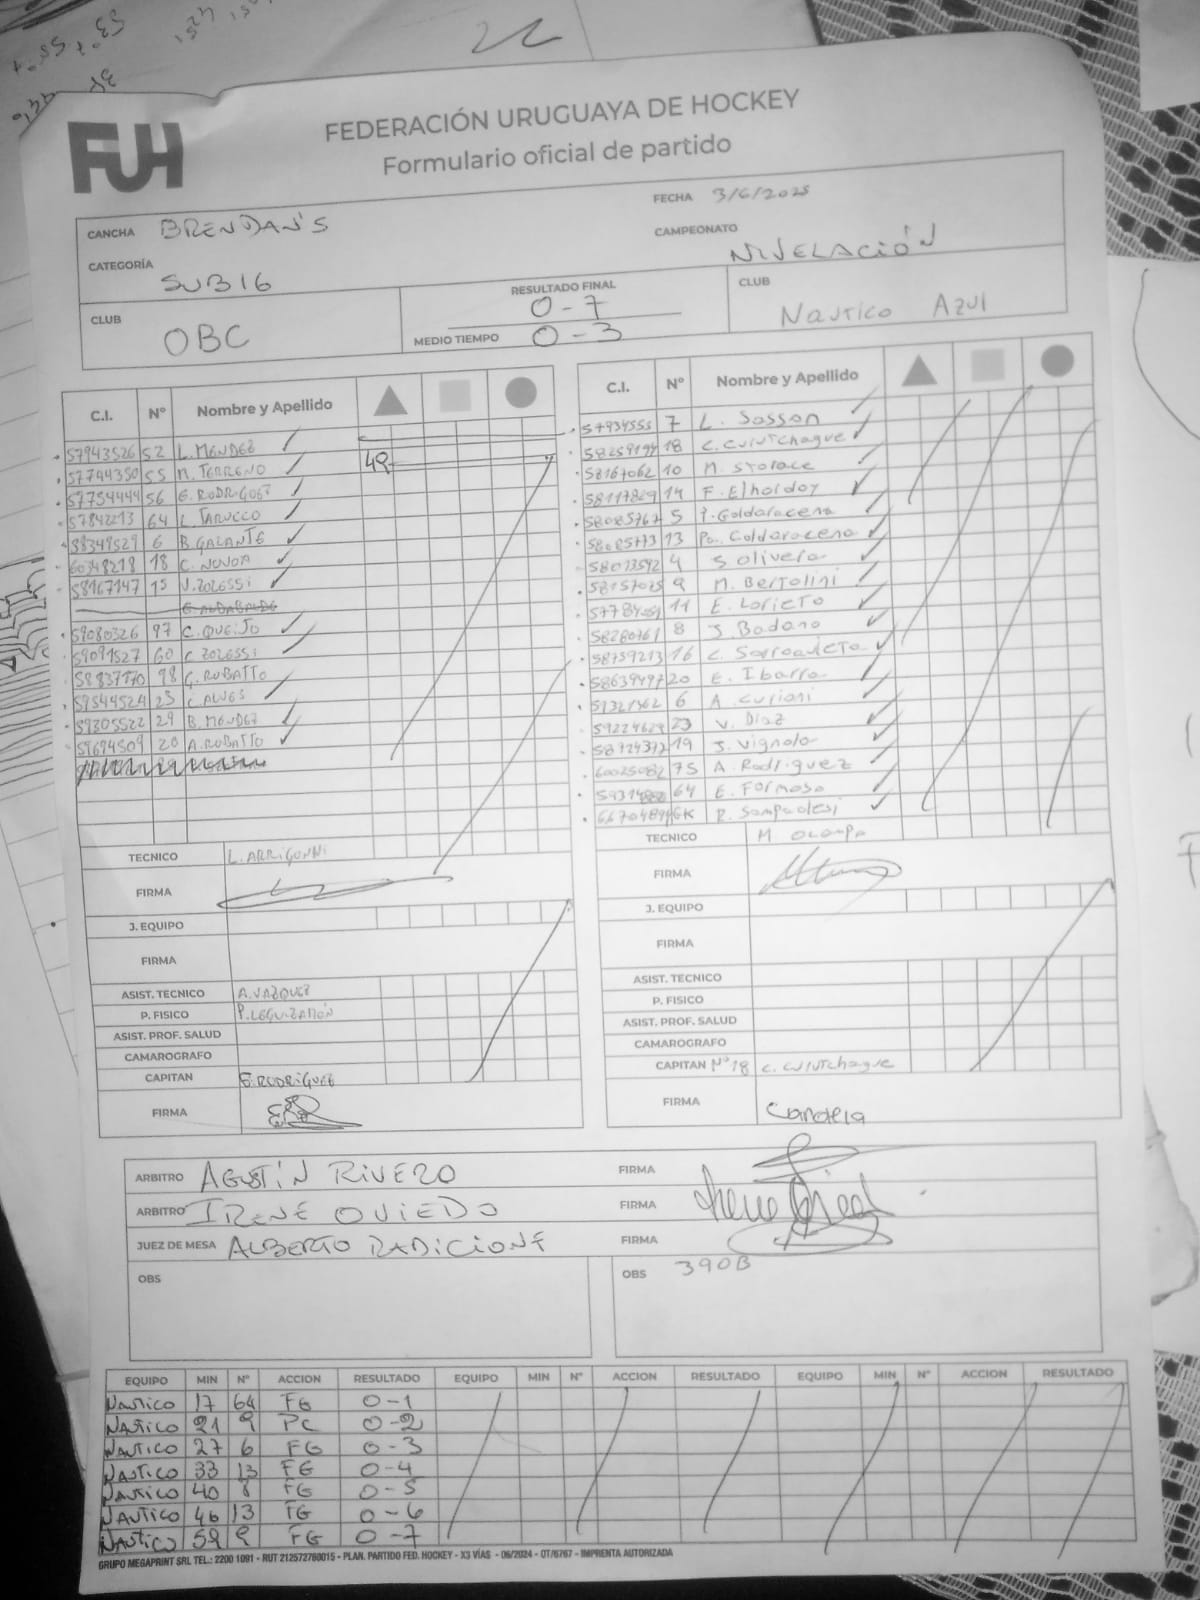 22
FUH
FEDERACIÓN URUGUAYA DE HOCKEY
Formulario oficial de partido
CANCHA BRENDAN'S
FECHA 3/6/2025
CATEGORÍA SUB16
CAMPEONATO NIVELACIÓN
CLUB OBC
RESULTADO FINAL 0-7
MEDIO TIEMPO 0-3
CLUB Nautico Azul
C.I. Nº Nombre y Apellido
57943526 52 L. MENDEZ
57744350 55 M. TERRENO 49
57754444 56 E. RODRIGUEZ
57842213 64 L. TARUCCO
58349529 6 B. GALANTE
60348218 18 C. NOVOA
58167147 15 V. ZOLESSI
59080326 97 C. QUEIJO
59091527 60 C. ZOLESSI
58837170 98 G. RUBATTO
59544524 23 C. ALVES
59305522 29 B. MENDEZ
59694509 20 A. RUBATTO
TECNICO L. ARRIGONNI
FIRMA
J. EQUIPO
FIRMA
ASIST. TECNICO A. VAZQUEZ
P. FISICO P. LEGUIZAMÓN
ASIST. PROF. SALUD
CAMAROGRAFO
CAPITAN E. RODRIGUEZ
FIRMA
C.I. Nº Nombre y Apellido
57934555 7 L. Sasson
18 C. Curutchague
58167062 10 M. Storace
58117829 14 F. Elhordoy
58085767 5 P. Goldaracena
58085773 13 Pa. Goldaracena
58073592 4 S. Olivera
58157025 9 M. Bertolini
11 E. Lorieto
58280761 8 J. Badano
58759213 16 C. Sarroavieta
58639497 20 E. Ibarra
51321562 6 A. Curioni
59224629 23 V. Diaz
58724372 19 J. Vignolo
60025082 75 A. Rodriguez
64 E. Formoso
GK R. Sampaolesi
TECNICO M Ocampo
FIRMA
J. EQUIPO
FIRMA
ASIST. TECNICO
P. FISICO
ASIST. PROF. SALUD
CAMAROGRAFO
CAPITAN Nº18 C. Curutchague
FIRMA Candela
ARBITRO AGUSTÍN RIVERO FIRMA
ARBITRO IRENE OVIEDO FIRMA
JUEZ DE MESA ALBERTO RADICIONE FIRMA
OBS
OBS 390B
EQUIPO MIN Nº ACCION RESULTADO EQUIPO MIN Nº ACCION RESULTADO EQUIPO MIN Nº ACCION RESULTADO
NAUTICO 17 64 FG 0-1
NAUTICO 21 9 PC 0-2
NAUTICO 27 6 FG 0-3
NAUTICO 33 13 FG 0-4
NAUTICO 40 8 FG 0-5
NAUTICO 46 13 FG 0-6
NAUTICO 59 9 FG 0-7
GRUPO MEGAPRINT SRL TEL.: 2200 1091 - RUT 212572780015 - PLAN. PARTIDO FED. HOCKEY - X3 VÍAS - 06/2024 - OT/6767 - IMPRENTA AUTORIZADA